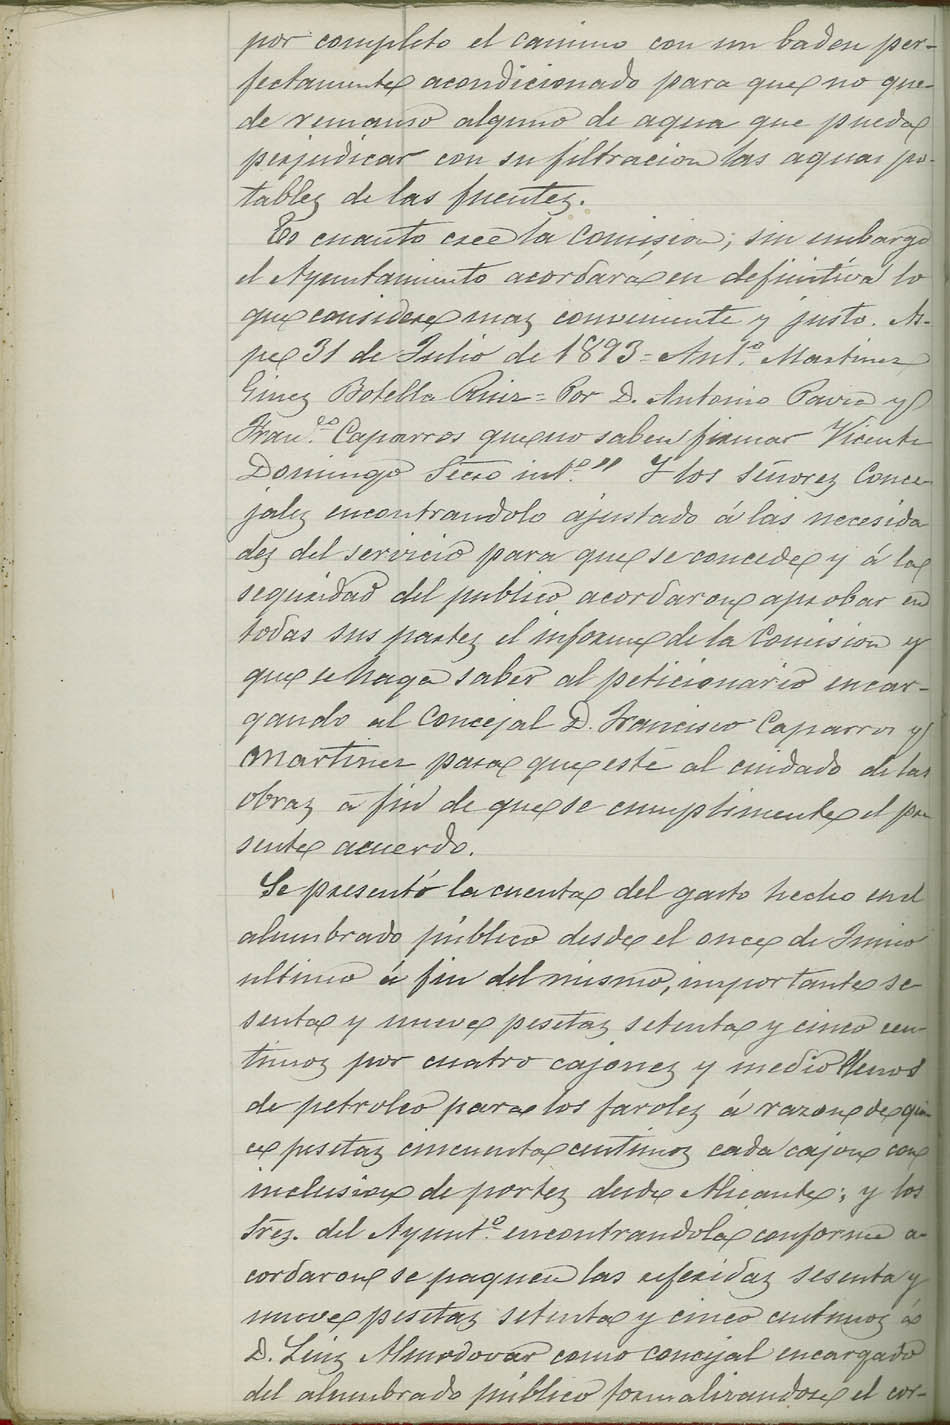 por completo el camino con un baden per-
fectamente acondicionado para que no que-
de remanso alguno de agua que pueda
perjudicar con su filtracion las aguas po-
tables de las fuentes.
Es cuanto cree la Comision; sin embargo
el Ayuntamiento acordara en definitiva lo
que considere mas conveniente y justo. As-
pe 31 de Julio de 1893 = Ant.º Martinez
Ginez Botella Ruiz = Por D. Antonio Pavia y
Fran.co Caparros que no saben firmar Vicente
Domingo Secro int.º" Y los señores Conce-
jales encontrandolo ajustado á las necesida
des del servicio para que se concede y á la
seguridad del publico acordaron aprobar en
todas sus partes el informe de la Comision y
que se haga saber al peticionario encar-
gando al Concejal D. Francisco Caparros y
Martinez para que esté al cuidado de las
obras á fin de que se cumplimente el pre
sente acuerdo.
Se presentó la cuenta del gasto hecho en el
alumbrado público desde el once de Junio
ultimo á fin del mismo, importante se
senta y nueve pesetas setenta y cinco cen-
timos por cuatro cajones y medio llenos
de petroleo para los faroles á razon de quin
ce pesetas cincuenta centimos cada cajon con
inclusion de portes desde Alicante; y los
Sres. del Ayunt.º encontrandola conforme a-
cordaron se paguen las referidas sesenta y
nueve pesetas setenta y cinco centimos á
D. Luis Almodovar como concejal encargado
del alumbrado público formalizandose el cor-